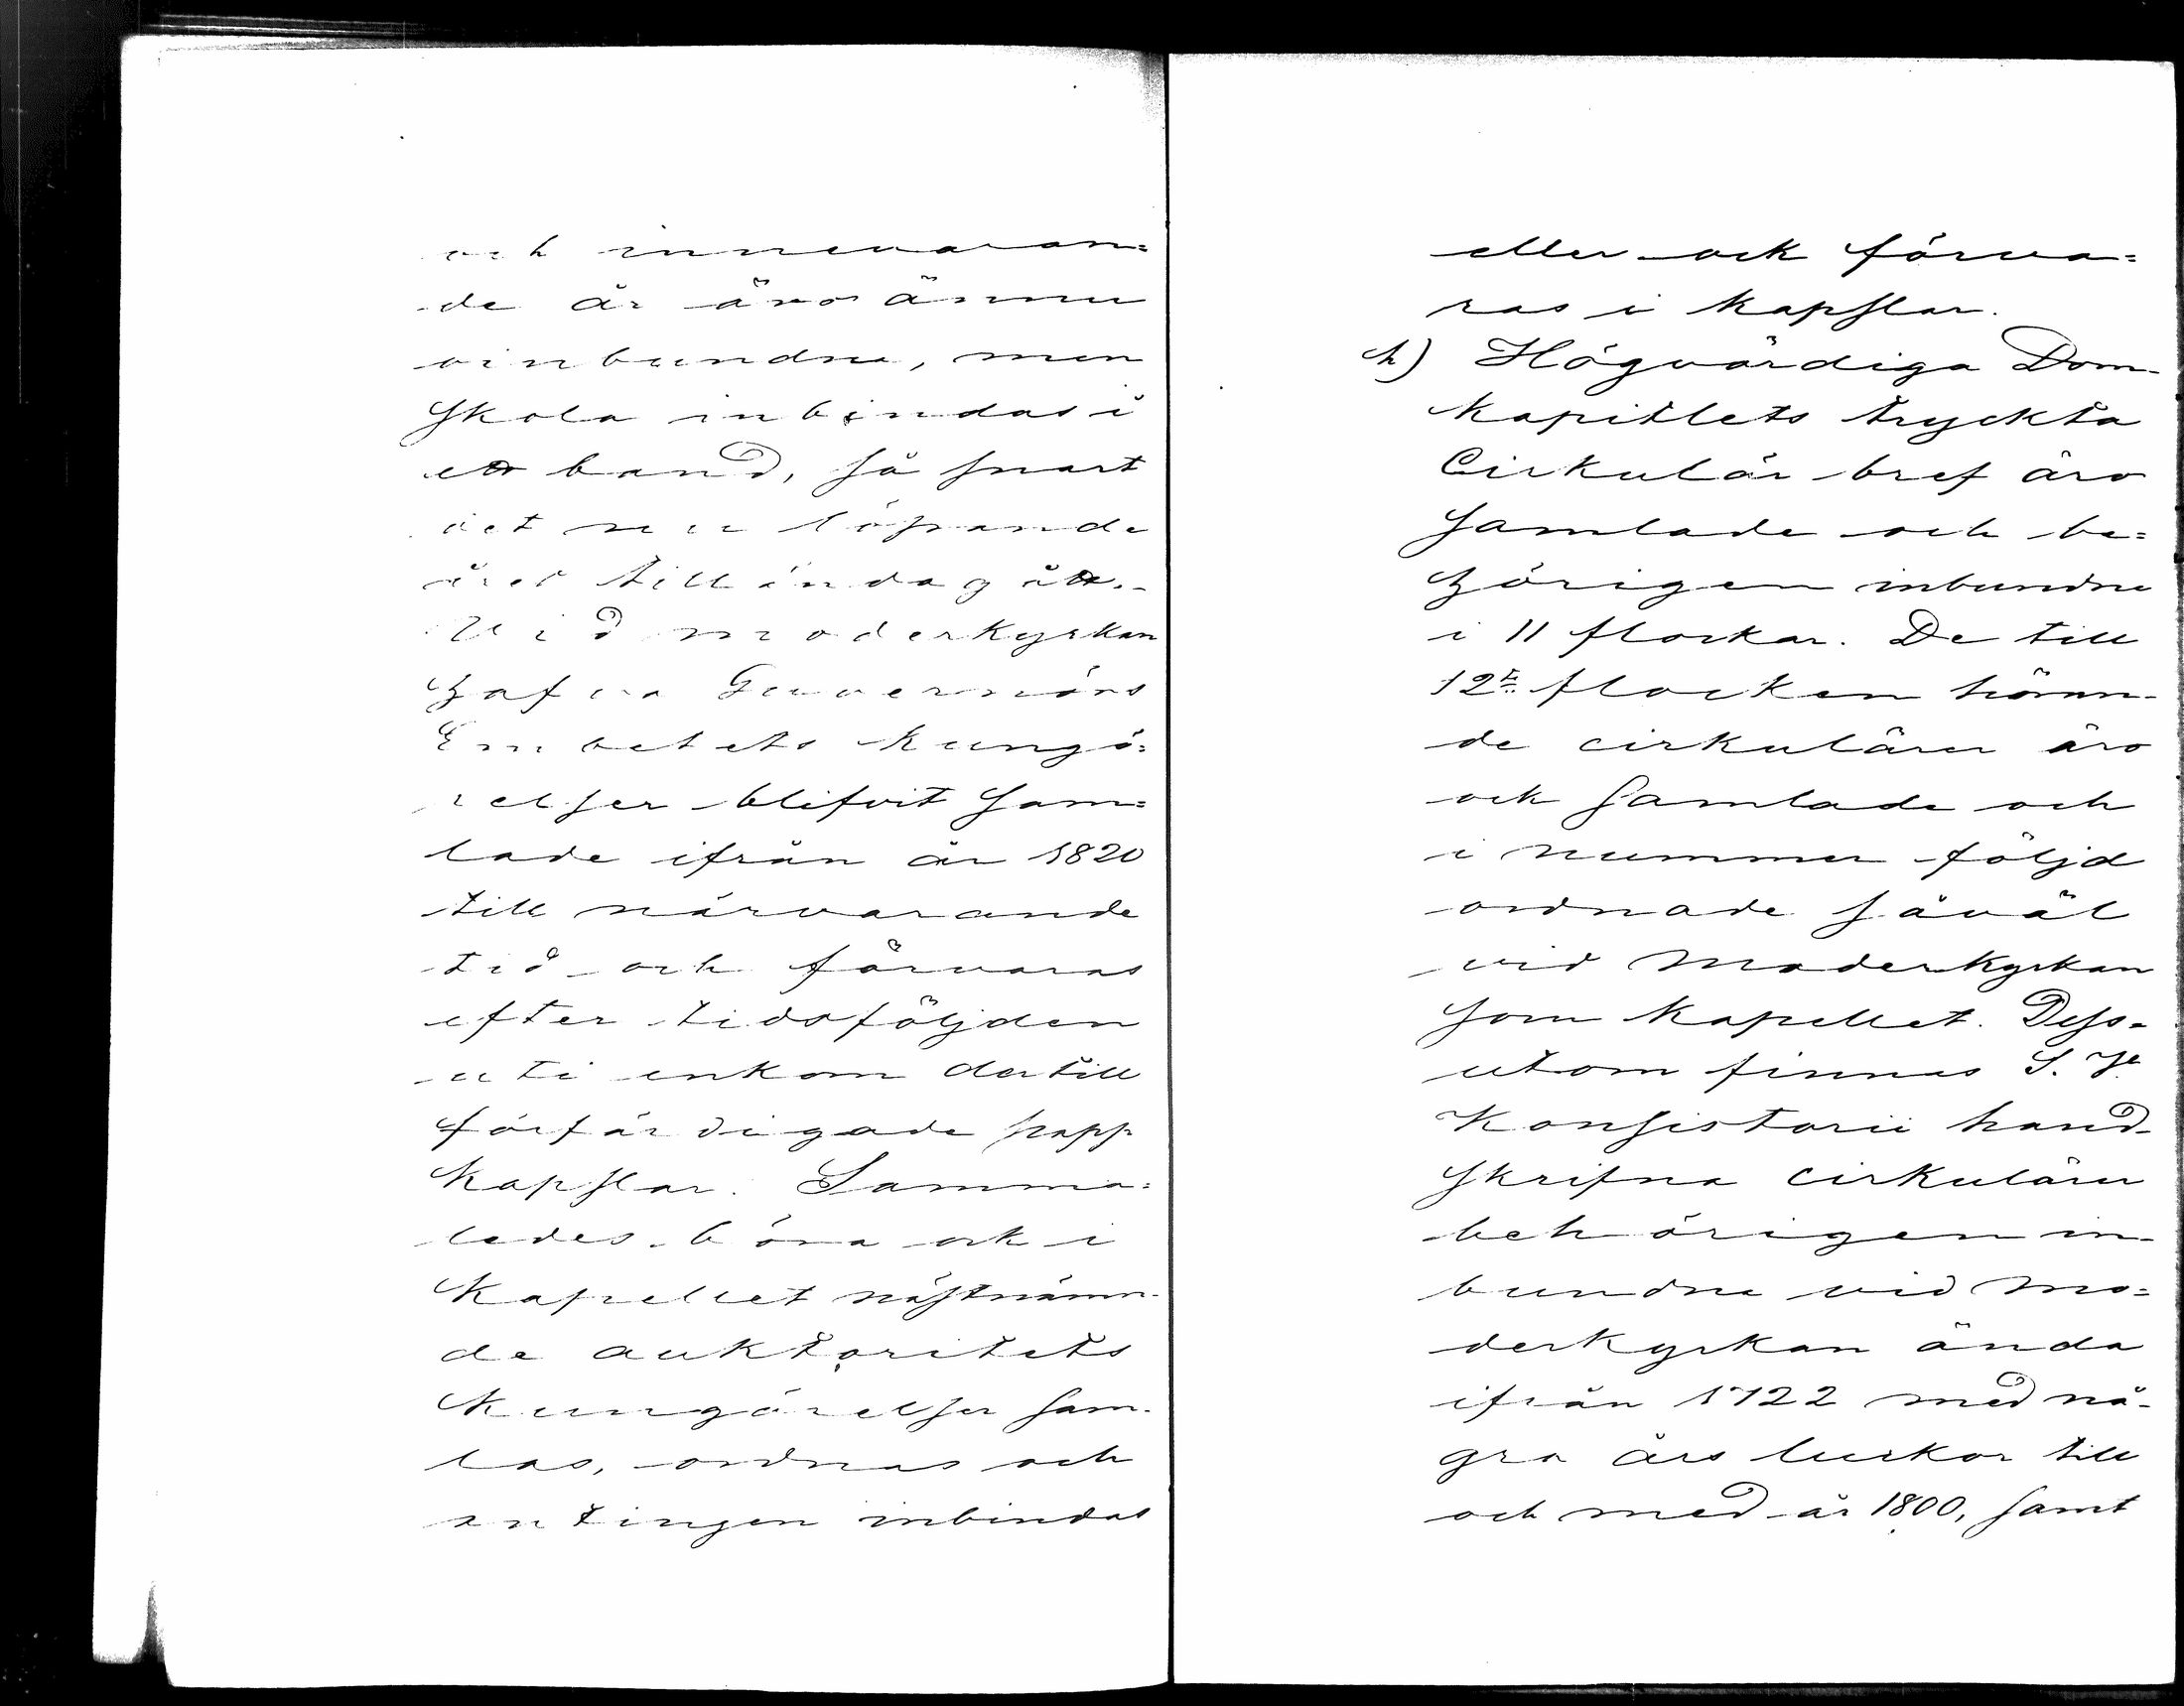 och innevaran=
de år äro ännu
oinbundna, men
skola inbindas i
ett band, så snart
det nu löpande
året tilländagått.-
Vid moderkyrkan
hafva Guvernörs
Embetets kungö=
relser blifvit sam=
lade ifrån år 1820
till närvarande
tid och förvaras
efter tidsföljden
uti enkom dertill
förfärdigade papp
kapslar. Samma=
ledes böra ock i
Kapellet nästnämn-
de auktoritets
kungörelser sam-
las, ordnas och
antingen inbindas
eller ock förva=
ras i kapslar.
h) Högvärdiga Dom-
kapitlets tryckta
Cirkulär bref äro
samlade och be=
hörigen inbundne
i 11 flockar. De till
12te flocken höran-
de cirkulärer äro
ock samlade och
i nummer följd
ordnade såväl
vid moderkyrkan
som kapellet. Dess-
utom finnas S. V.
Konsistorii hand-
skrifna cirkulärer
behörigen in-
bundne vid mo=
derkyrkan ända
ifrån 1722 med nå-
gra års luckor till
och med år 1800, samt